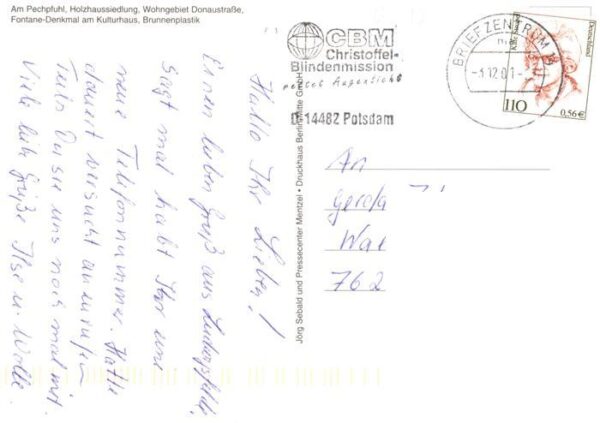 Am Pechpfuhl, Holzhaussiedlung, Wohngebiet Donaustraße,
Fontane-Denkmal am Kulturhaus, Brunnenplastik
Hallo Ihr Lieben!
Einen lieben Gruß aus Ludwigsfelde.
Sagt mal habt Ihr eine
neue Telefonnummer. Hatte
dauert versucht anzurufen
Teile Du sie uns noch mal mit.
Viele liebe Grüße Ilse u. Wolle.
Jörg Sebald und Pressecenter Menzel • Druckhaus Berlin-Mitte GmbH
CBM
Christoffel-
Blindenmission
rettet Augenlicht
D-14482 Potsdam
BRIEFZENTRUM
-3.12.01-
Deutschland
110
0,56€
An
Gerda
War
762